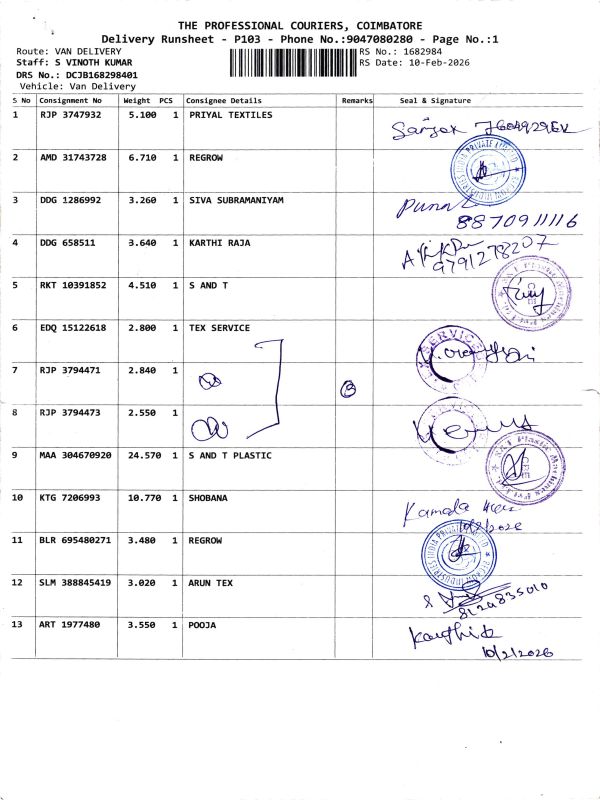 THE PROFESSIONAL COURIERS, COIMBATORE
Delivery Runsheet - P103 - Phone No.:9047080280 - Page No.:1
Route: VAN DELIVERY
RS No.: 1682984
Staff: S VINOTH KUMAR
RS Date: 10-Feb-2026
DRS No.: DCJB168298401
Vehicle: Van Delivery
S No Consignment No Weight PCS Consignee Details Remarks Seal & Signature
1 RJP 3747932 5.100 1 PRIYAL TEXTILES
2 AMD 31743728 6.710 1 REGROW
3 DDG 1286992 3.260 1 SIVA SUBRAMANIYAM
8870911116
4 DDG 658511 3.640 1 KARTHI RAJA
9791278207
5 RKT 10391852 4.510 1 S AND T
6 EDQ 15122618 2.800 1 TEX SERVICE
7 RJP 3794471 2.840 1
8 RJP 3794473 2.550 1
9 MAA 304670920 24.570 1 S AND T PLASTIC
10 KTG 7206993 10.770 1 SHOBANA
Kamala
10/2/2026
11 BLR 695480271 3.480 1 REGROW
12 SLM 388845419 3.020 1 ARUN TEX
8129835010
13 ART 1977480 3.550 1 POOJA
Karthik
10/2/2026